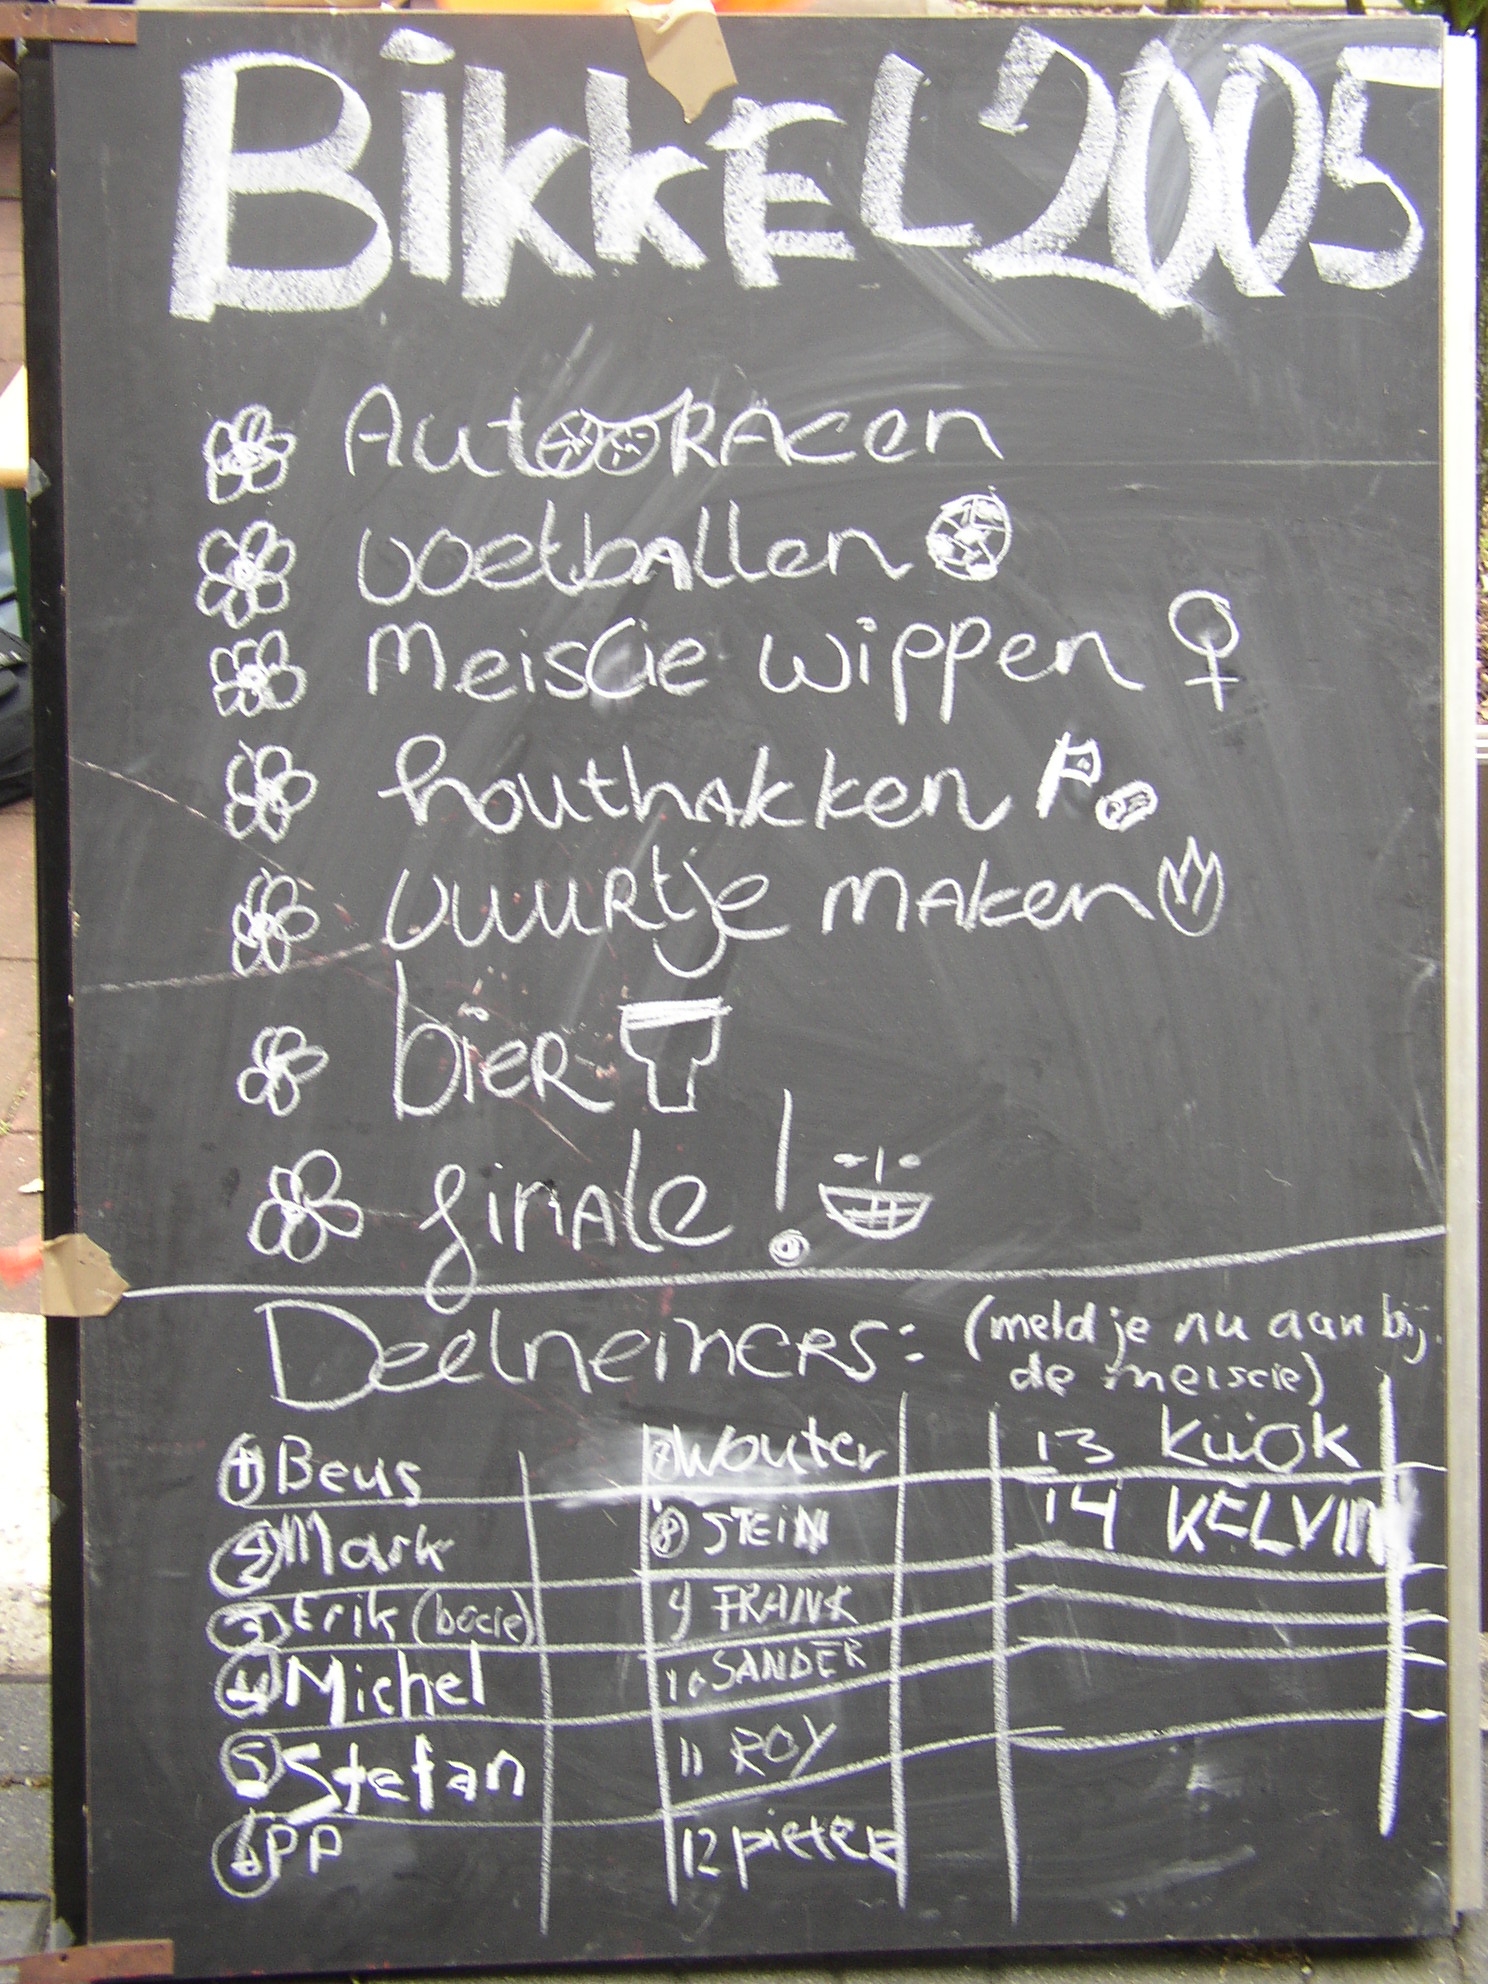 BikkEL 2005
AutooRAcen
voetbAllen
MeisCie wippen
houthakken
vuuRtje mAken
bieR
finAle !
Deelnemers: (meld je nu aan bij
de meiscie)
1 Beus
2 Mark
3 Erik (bocie)
4 Michel
5 Stefan
6 PP
7 Wouter
8 STEiN
9 FRANK
10 SANDER
11 ROY
12 pieter
13 Kuiok
14 KELVIN